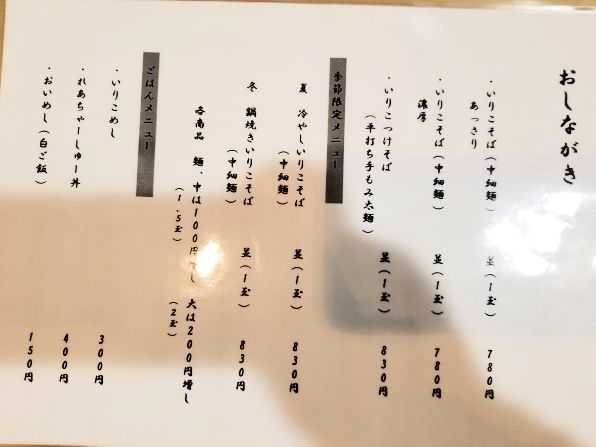 おしながき
・いりこそば（中細麺） 並（1玉） 780円
あっさり
・いりこそば（中細麺） 並（1玉） 780円
濃厚
・いりこつけそば 並（1玉） 830円
（平打ち手もみ太麺）
季節限定メニュー
夏 冷やしいりこそば 並（1玉） 830円
（中細麺）
冬 鍋焼きいりこそば 並（1玉） 830円
（中細麺）
各商品 麺、中は100円 し 大は200円増し
（1.5玉） （2玉）
ごはんメニュー
・いりこめし 300円
・れあちゃーしゅー丼 400円
・おいめし（白ご飯） 150円